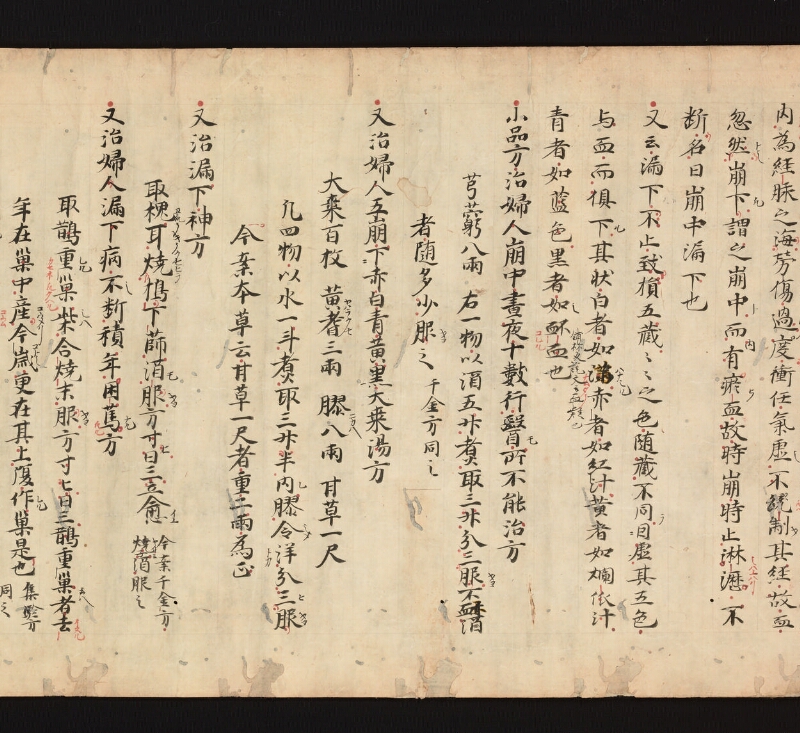 内為経脉之海劳傷過度衝任氣虚不統制其経故血
忽然崩下謂之崩中而有瘀血故時崩時止淋瀝不
断名曰崩中漏下也
又云漏下不止致損五蔵〻〻之色随蔵不同曰虚其五色
与血而俱下其状白者如 赤者如紅汁黄者如爛依汁
青者如藍色黒者如衃血也
小品方治婦人崩中晝夜十數行醫所不能治方
芎藭八兩 右一物以酒五升煮取三升分三服不 酒
者随多少服之 千金方同之
又治婦人五崩下赤白青黄黒大棗湯方
大棗百枚 黄耆三兩 膠八兩 甘草一尺
凡四物以水一斗煮取三升半内膠令洋分三服
今案本草云甘草一尺者重二兩為正
又治漏下神方
取槐耳燒 下篩酒服方寸匕日三立愈 今案千金方
燒酒服之
又治婦人漏下病不断積年困篤方
取鵲重巢柴合燒末服方寸匕日三鵲重巢者去
年在巢中産今歳更在其上復作巢是也 集驗方
同之